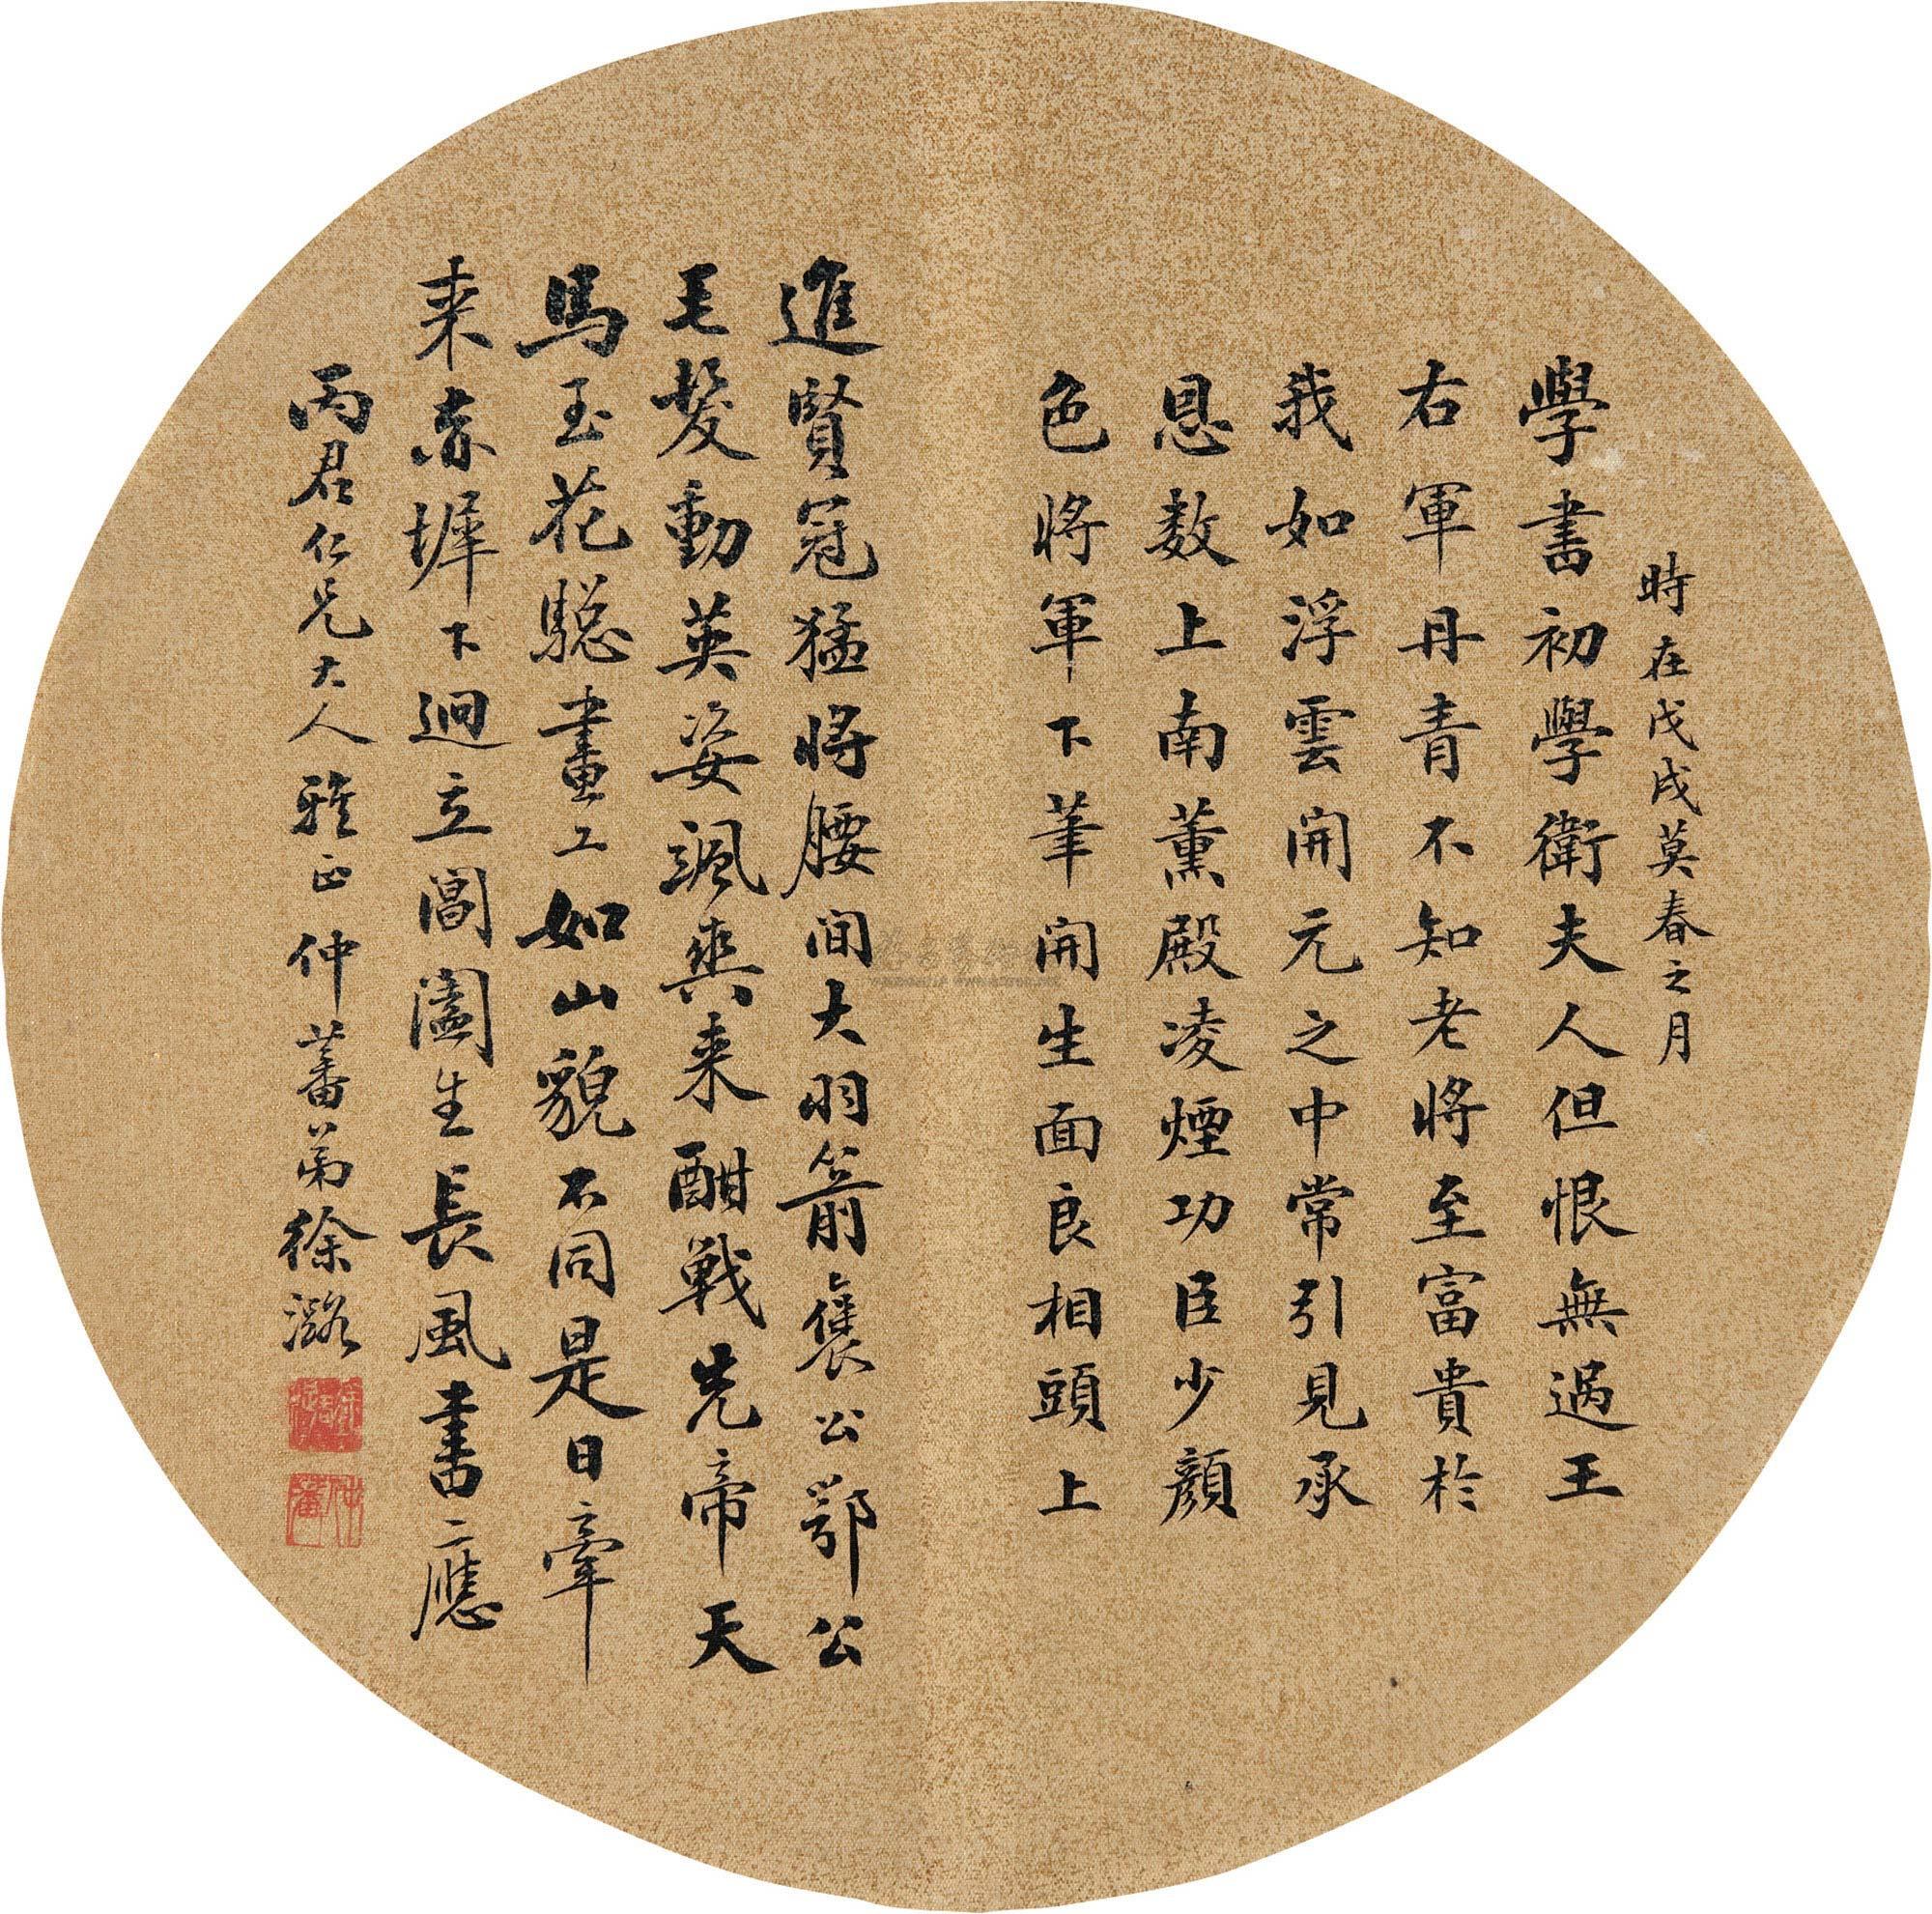 時在戊戌莫春之月
學書初學衛夫人但恨無過王
右軍丹青不知老將至富貴於
我如浮雲開元之中常引見承
恩数上南薰殿凌煙功臣少顏
色將軍下筆開生面良相頭上
進賢冠猛將腰間大羽箭襃公鄂公
毛髮動英姿颯爽来酣戰先帝天
馬玉花驄畫工如山貌不同是日牽
来赤墀下迥立閶闔生長風書二應
丙君仁兄大人雅正仲蕃弟徐潞